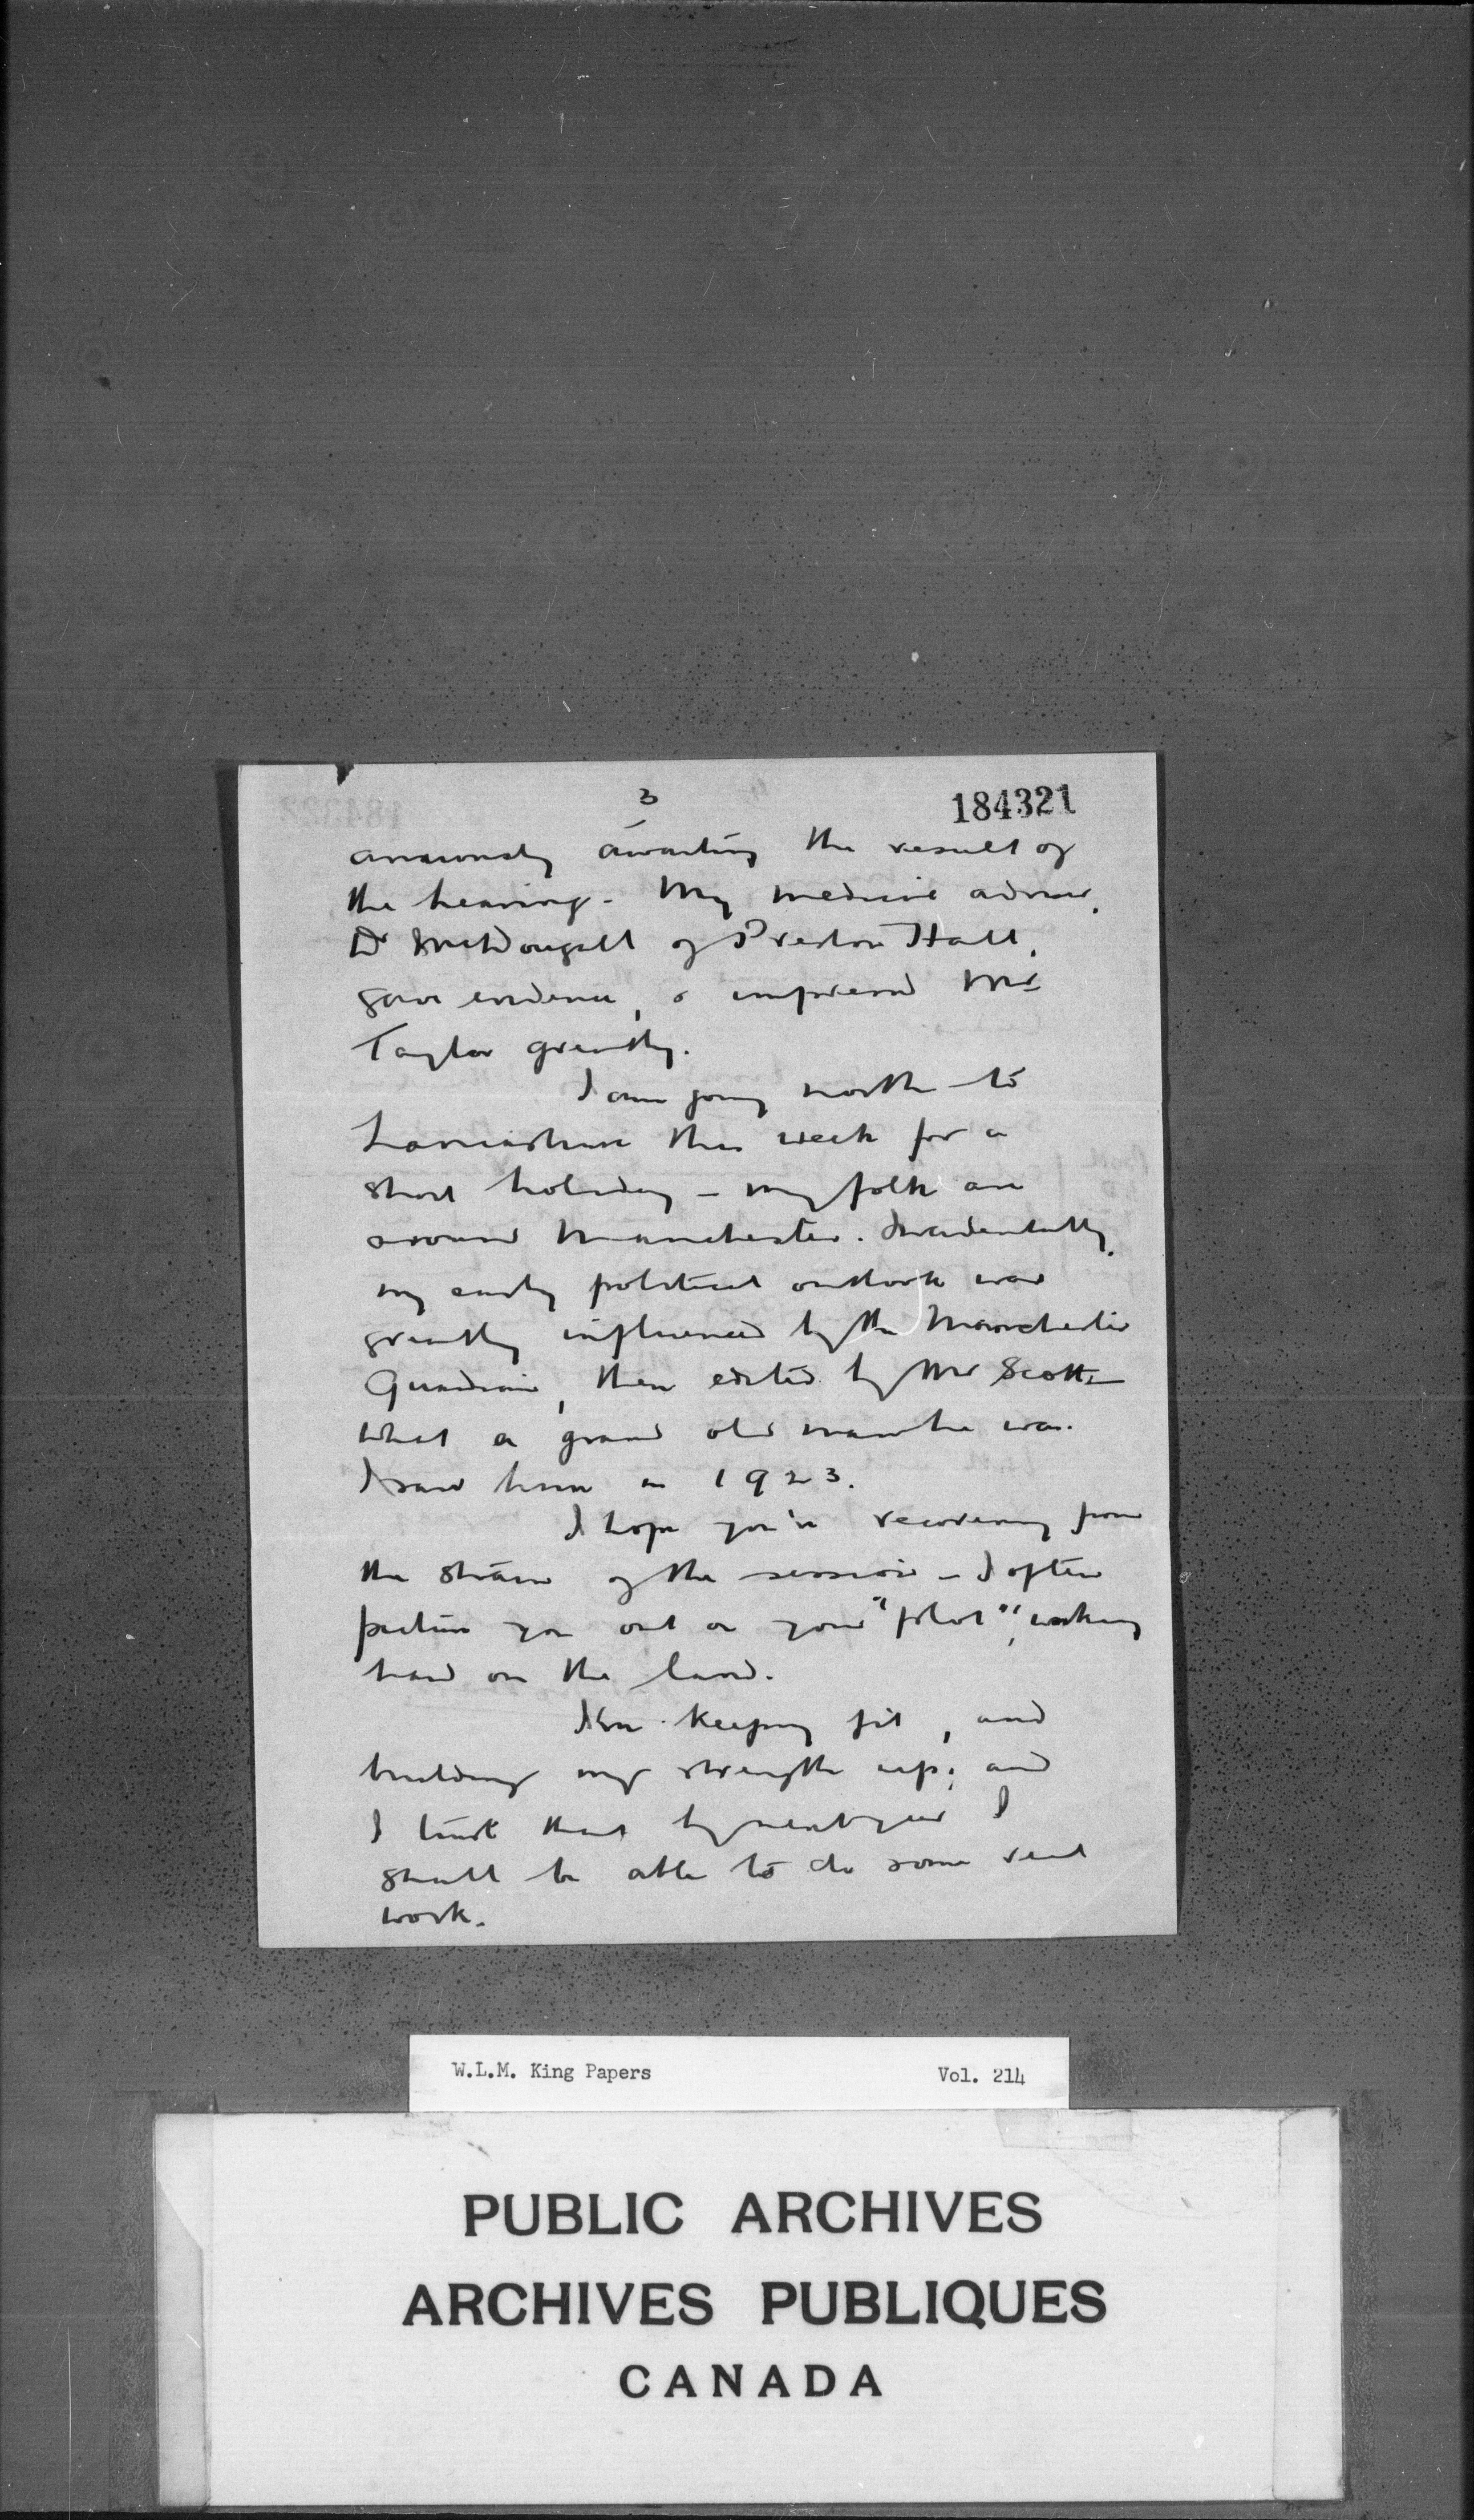 3
184321
anxiously awaiting the result of
the hearing. My medical adviser,
Dr McDougall of Preston Hall,
gave evidence, & impressed Mr
Taylor greatly.
I am going north to
Lancashire this week for a
short holiday - my folk are
around Manchester. Incidentally,
my early political outlook was
greatly influenced by the Manchester
Guardian, then edited by Mr Scott -
what a grand old man he was.
I saw him in 1923.
I hope you're recovering from
the strain of the session - I often
picture you out on your "plot", working
hard on the land.
I'm keeping fit, and
building my strength up; and
I trust that by next year I
shall be able to do some real
work.
W.L.M. King Papers Vol. 214
PUBLIC ARCHIVES
ARCHIVES PUBLIQUES
CANADA